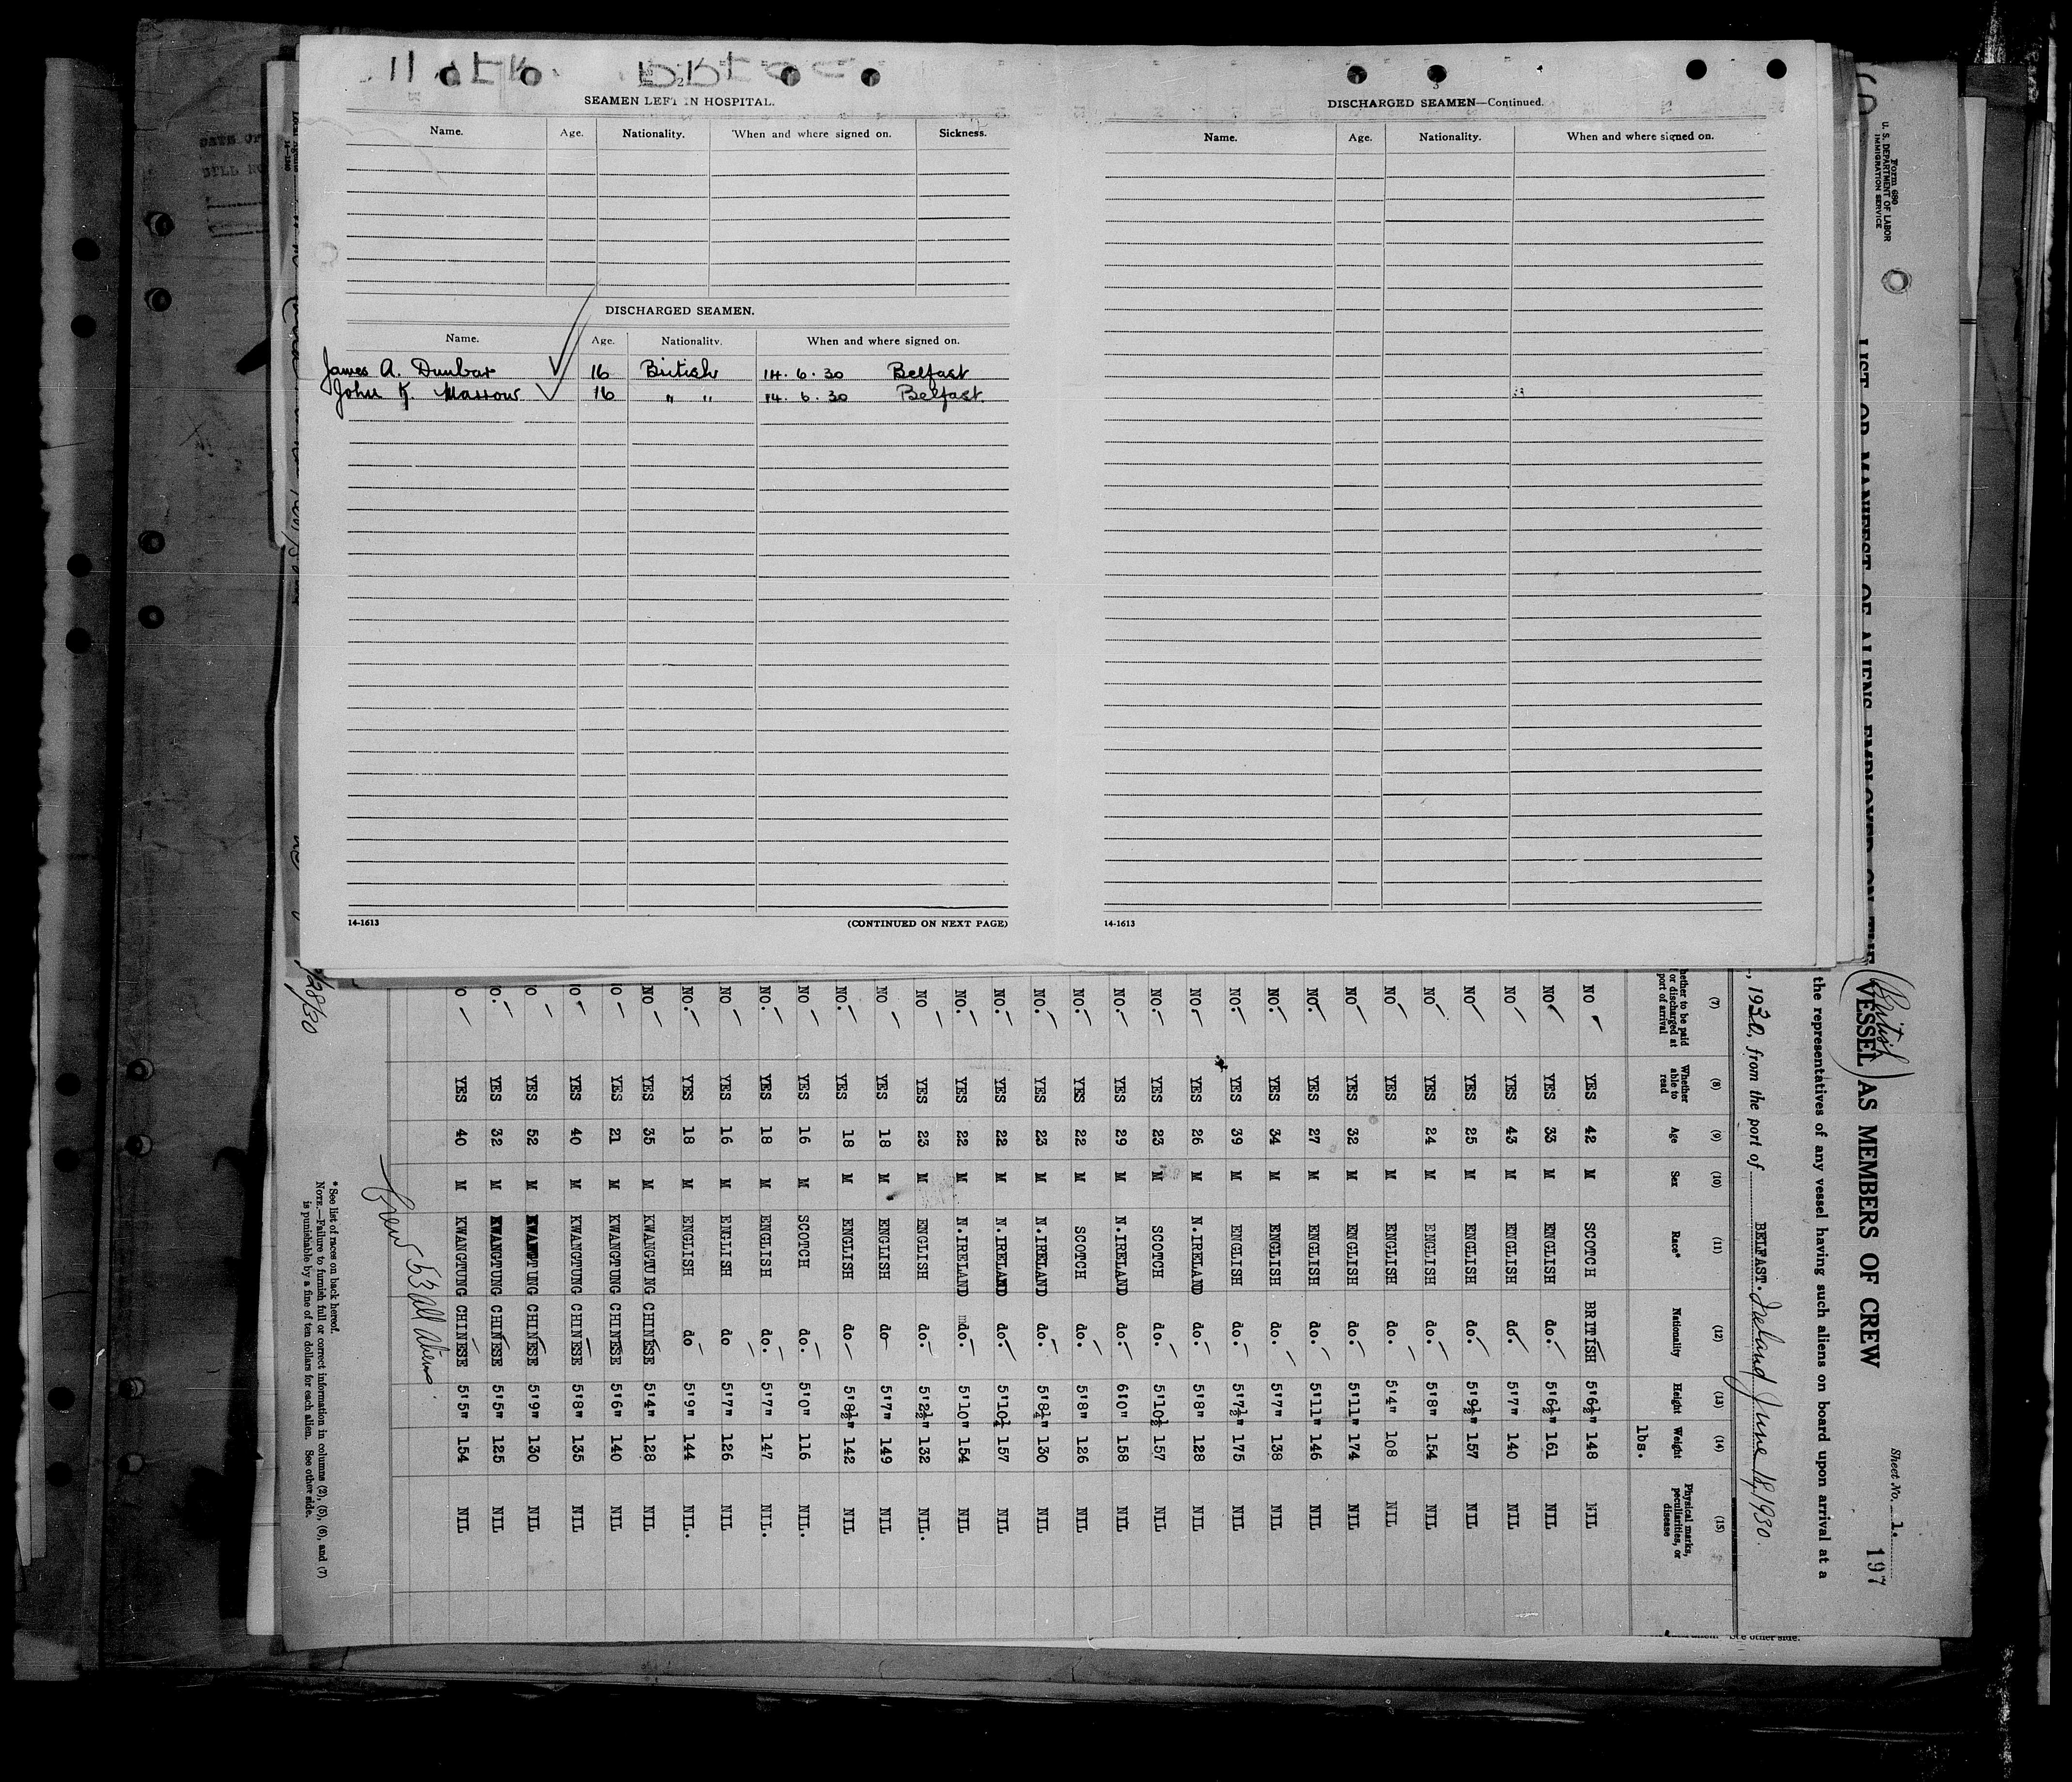 2
SEAMEN LEFT IN HOSPITAL.
Name. Age. Nationality. When and where signed on. Sickness.
DISCHARGED SEAMEN.
Name. Age. Nationality. When and where signed on.
James A. Dunbar 16 British 14. 6. 30 Belfast
John K. Marrow 16 " " 14. 6. 30 Belfast.
14-1613 (CONTINUED ON NEXT PAGE)
3
DISCHARGED SEAMEN—Continued.
Name. Age. Nationality. When and where signed on.
14-1613
Form 680
U. S. DEPARTMENT OF LABOR
IMMIGRATION SERVICE
Sheet No. 1.
197
LIST OR MANIFEST OF ALIENS EMPLOYED ON THE
British
VESSEL AS MEMBERS OF CREW
the representatives of any vessel having such aliens on board upon arrival at a
, 1930, from the port of BELFAST. Ireland June 18, 1930.
(7) (8) (9) (10) (11) (12) (13) (14) (15)
whether to be paid or discharged at port of arrival Whether able to read Age Sex Race* Nationality Height Weight Physical marks, peculiarities, or disease
lbs.
NO YES 42 M SCOTCH BRITISH 5'6½" 148 NIL
NO YES 33 M ENGLISH do. 5'6½" 161 NIL
NO YES 43 M ENGLISH do 5'7" 140 NIL
NO. YES 25 M ENGLISH do. 5'9½" 157 NIL
NO. YES 24 M ENGLISH do. 5'8" 154 NIL
NO YES M ENGLISH do. 5'4" 108 NIL
NO. YES 32 M ENGLISH do. 5'11" 174 NIL
NO. YES 27 M ENGLISH do. 5'11" 146 NIL
NO. YES 34 M ENGLISH do. 5'7" 138 NIL
NO. YES 39 M ENGLISH do. 5'7½" 175 NIL
NO. YES 26 M N.IRELAND do. 5'8" 128 NIL
NO. YES 23 M SCOTCH do. 5'10½" 157 NIL
NO. YES 29 M N.IRELAND do. 6'0" 158 NIL
NO. YES 22 M SCOTCH do. 5'8" 126 NIL
NO. YES 23 M N.IRELAND do. 5'8½" 130 NIL
NO. YES 22 M N.IRELAND do. 5'10½" 157 NIL
NO. YES 22 M N.IRELAND do. 5'10" 154 NIL
NO YES 23 M ENGLISH do. 5'2½" 132 NIL.
NO YES 18 M ENGLISH do 5'7" 149 NIL
NO. YES 18 M ENGLISH do. 5'8½" 142 NIL
NO YES 16 M SCOTCH do. 5'0" 116 NIL.
NO. YES 18 M ENGLISH do. 5'7" 147 NIL.
NO. YES 16 M ENGLISH do 5'7" 126 NIL
NO. YES 18 M ENGLISH do 5'9" 144 NIL.
NO YES 35 M KWANGTUNG CHINESE 5'4" 128 NIL
NO YES 21 M KWANGTUNG CHINESE 5'6" 140 NIL
NO YES 40 M KWANGTUNG CHINESE 5'8" 135 NIL
O YES 52 M KWANGTUNG CHINESE 5'9" 130 NIL
O. YES 32 M KWANGTUNG CHINESE 5'5" 125 NIL
O YES 40 M KWANGTUNG CHINESE 5'5" 154 NIL
Crew 53 all aliens
*See list of races on back hereof.
NOTE.—Failure to furnish full or correct information in columns (2), (5), (6), and (7)
is punishable by a fine of ten dollars for each alien. See other side.
/28/30
See other side.